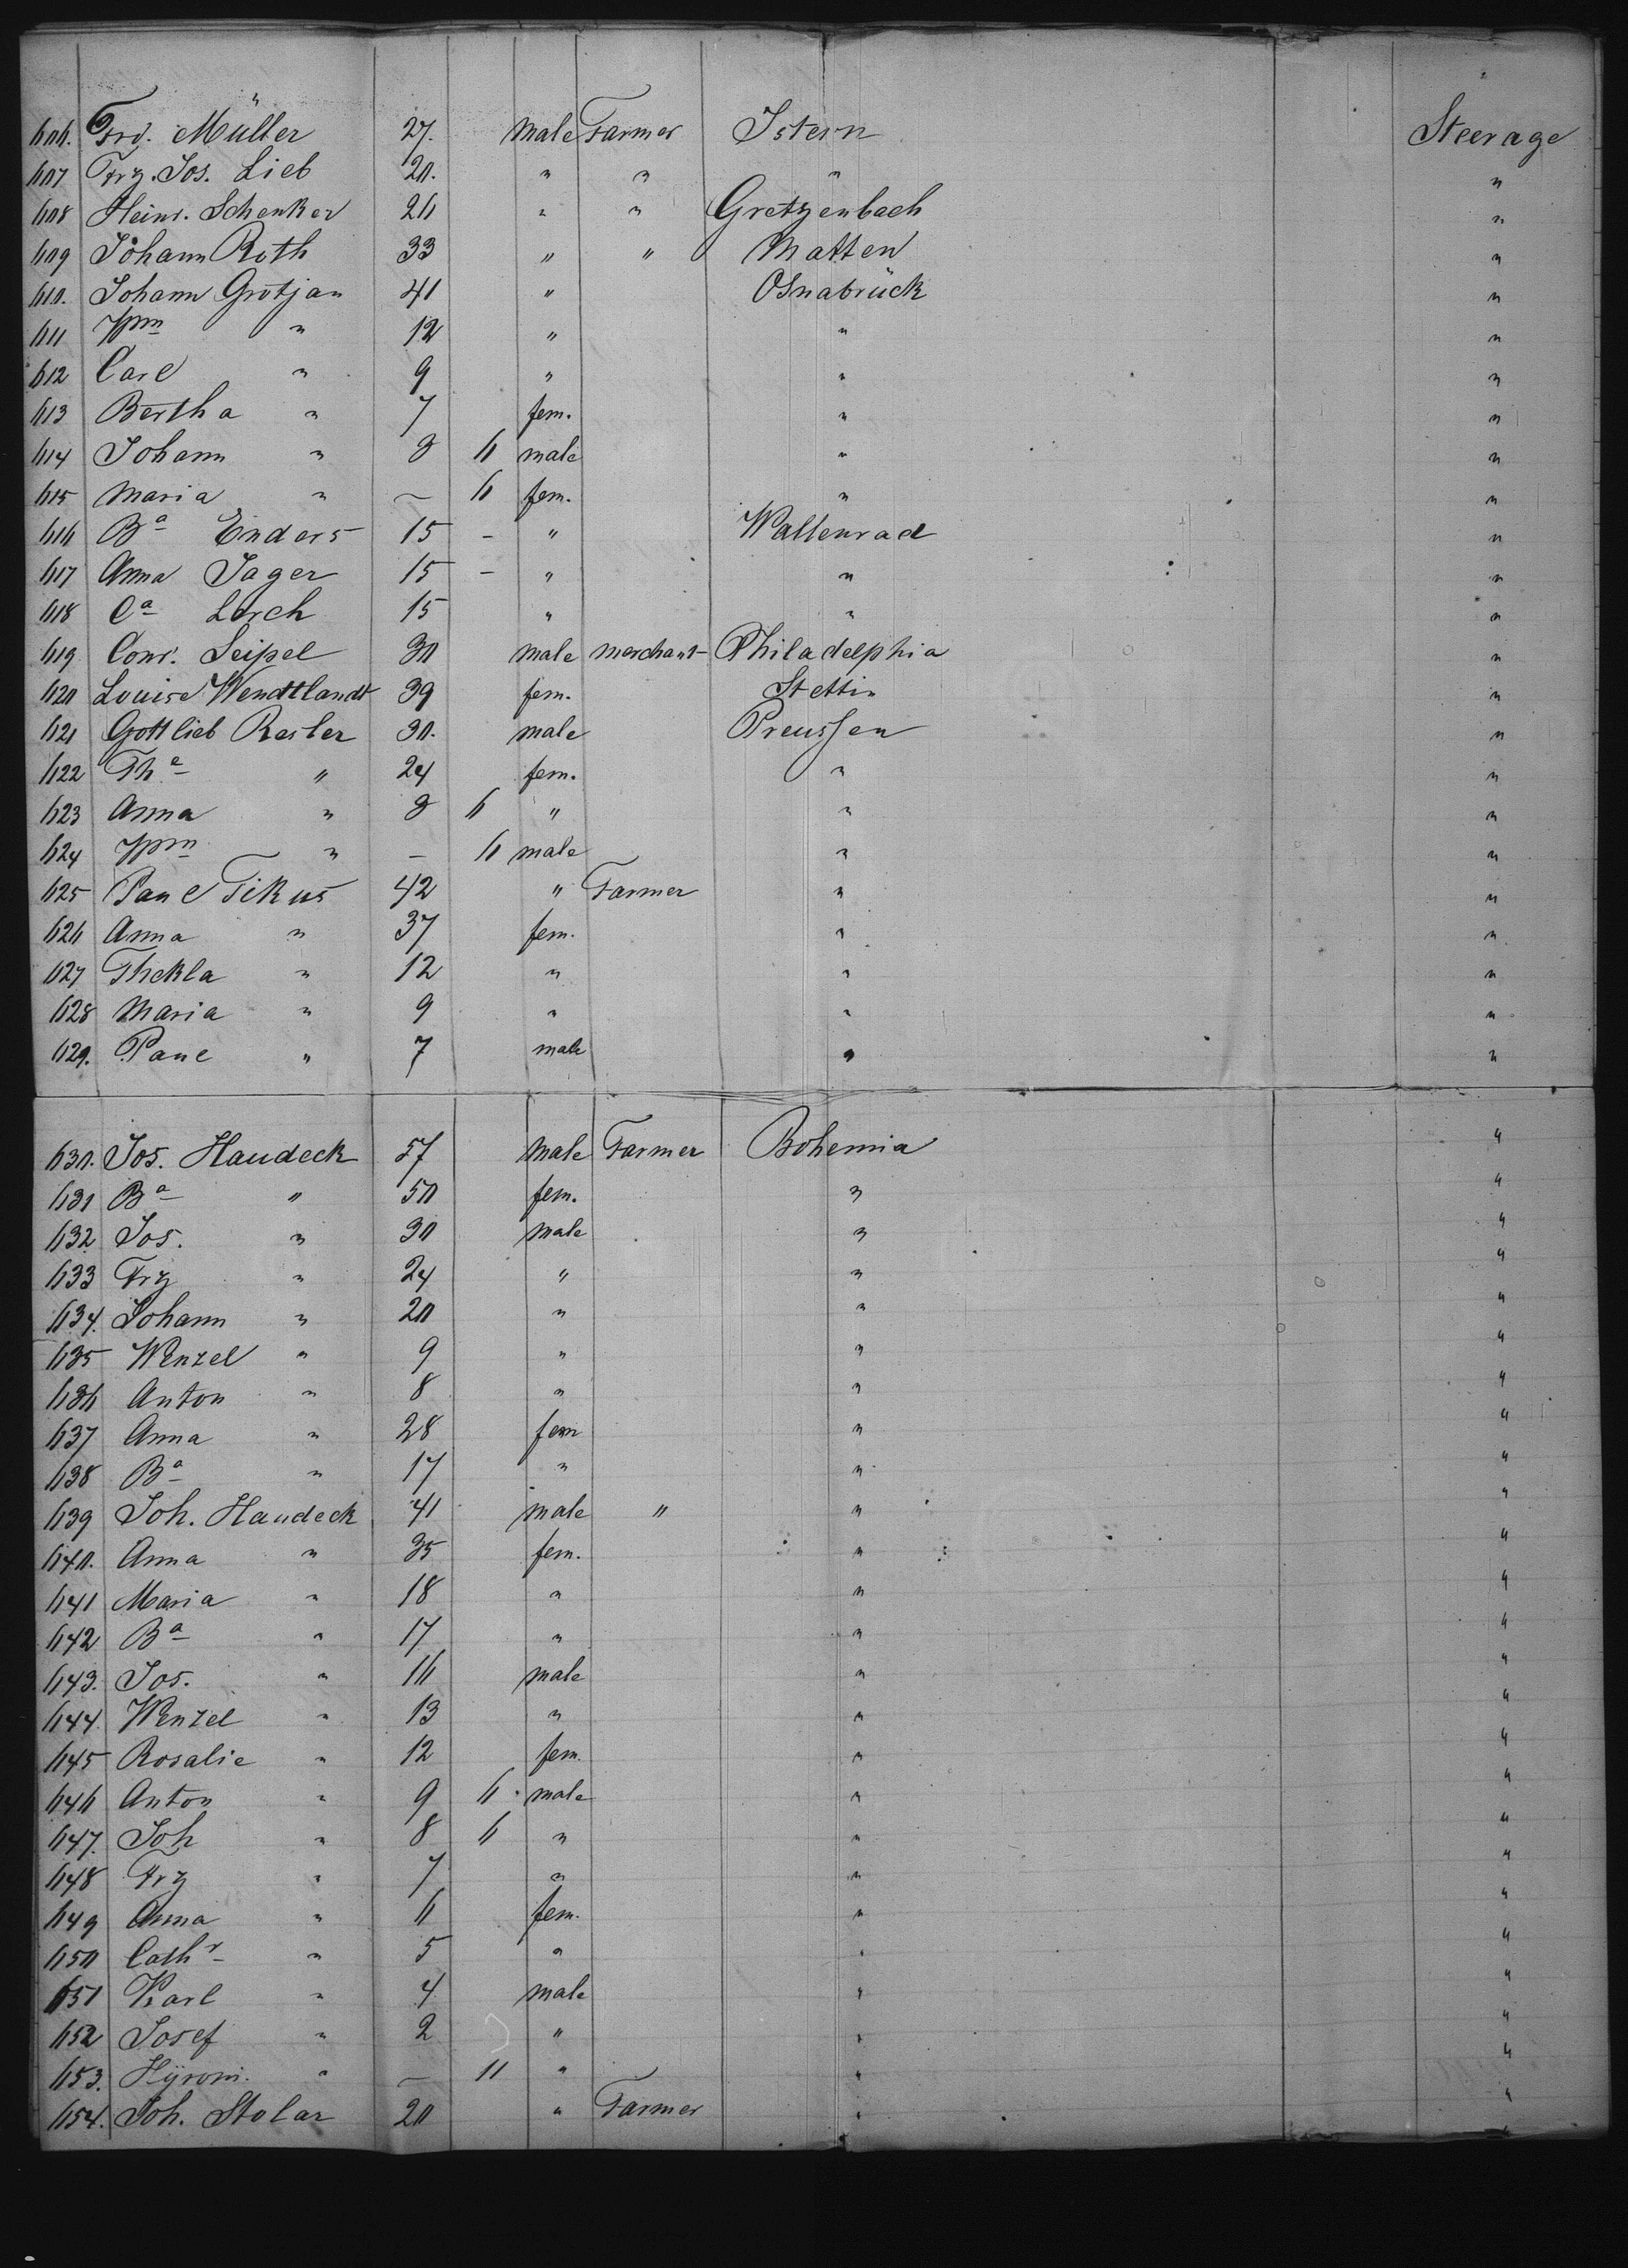 606. Frd. Müller 27. male Farmer Istein Steerage
607 Frz. Jos. Lieb 20. " " " "
608 Heinr. Schenker 26 " " Gretzenbach "
609 Johann Roth 33 " " Matten "
610. Johann Grotjan 41 " Osnabrück "
611 Wm " 12 " " "
612 Carl " 9 " " "
613 Bertha " 7 fem. " "
614 Johann " 3 6 male " "
615 Maria " — 6 fem. " "
616 Ba Enders 15 - " Wallenrad "
617 Anna Jager 15 - " " "
618 Ca Lorch 15 " " "
619 Conr. Seipel 30 male merchant Philadelphia "
620 Louise Wendtlandt 39 fem. Stettin "
621 Gottlieb Resler 30. male Preussen "
622 The " 24 fem. " "
623 Anna " 3 6 " " "
624 Wm " — 6 male " "
625 Paul Tikus 42 " Farmer " "
626 Anna " 37 fem. " "
627 Thekla " 12 " " "
628 Maria " 9 " " "
629. Paul " 7 male " "
630. Jos. Haudeck 57 male Farmer Bohemia "
631 Ba " 50 fem. " "
632 Jos. " 30 male " "
633 Frz " 24 " " "
634. Johann " 20 " " "
635 Wenzel " 9 " " "
636 Anton " 8 " " "
637 Anna " 28 fem " "
638 Ba " 17 " " "
639 Joh. Haudeck 41 male " " "
640. Anna " 35 fem. " "
641 Maria " 18 " " "
642 Ba " 17 " " "
643. Jos. " 16 male " "
644. Wenzel " 13 " " "
645 Rosalie " 12 fem. " "
646 Anton " 9 6 male " "
647. Joh " 8 6 " " "
648 Frz " 7 " " "
649 Anna " 6 fem. " "
650 Cathr " 5 " " "
651 Karl " 4 male " "
652 Josef " 2 " " "
653. Hÿroni. " — 11 " " "
654. Joh. Stolar 20 " Farmer " "